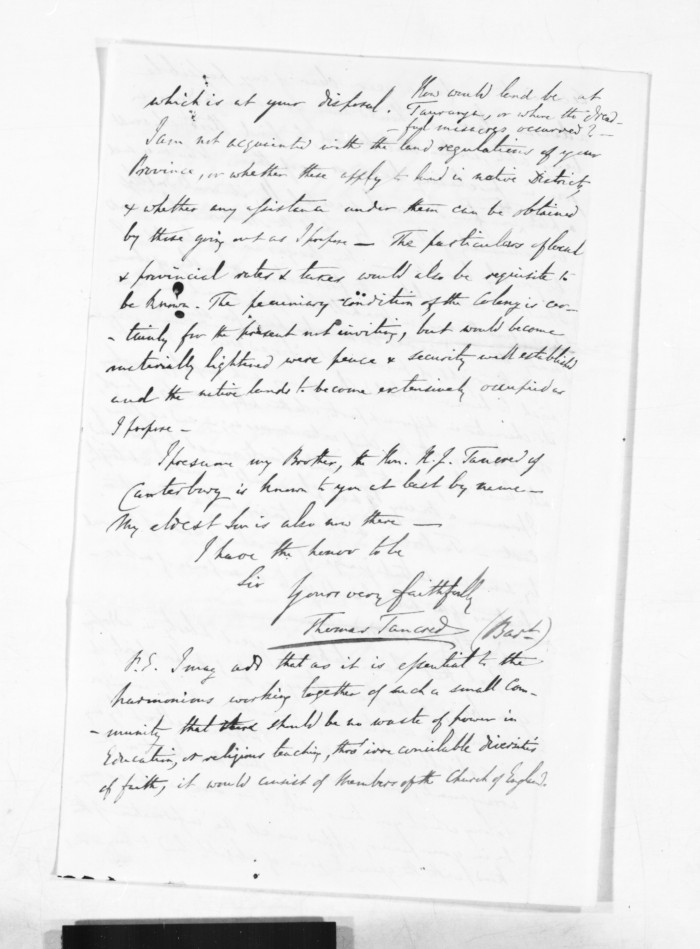 which is at your disposal. How would land be at
Tauranga, or where the dread-
-ful massacres occurred? -
I am not acquainted with the land regulations of your
Province, or whether these apply to land in native Districts,
& whether any assistance under them can be obtained
by those going out as I propose - The particulars of local
& provincial rates & taxes would also be requisite to
be known. The pecuniary condition of the Colony is cer-
-tainly for the present not inviting, but would become
materially lightened were peace & security well established
and the native lands to become extensively occupied as
I propose -
I presume my Brother, the Hon. H. J. Tancred of
Canterbury is known to you at least by name -
My eldest Son is also now there -
I have the honor to be
Sir
Yours very faithfully
Thomas Tancred (Bart)
P.S. I may add that as it is essential to the
harmonious working together of such a small com-
-munity that there should be no waste of power in
Education, or religious teaching, thro' irreconcilable diversities
of faith, it would consist of Members of the Church of England.